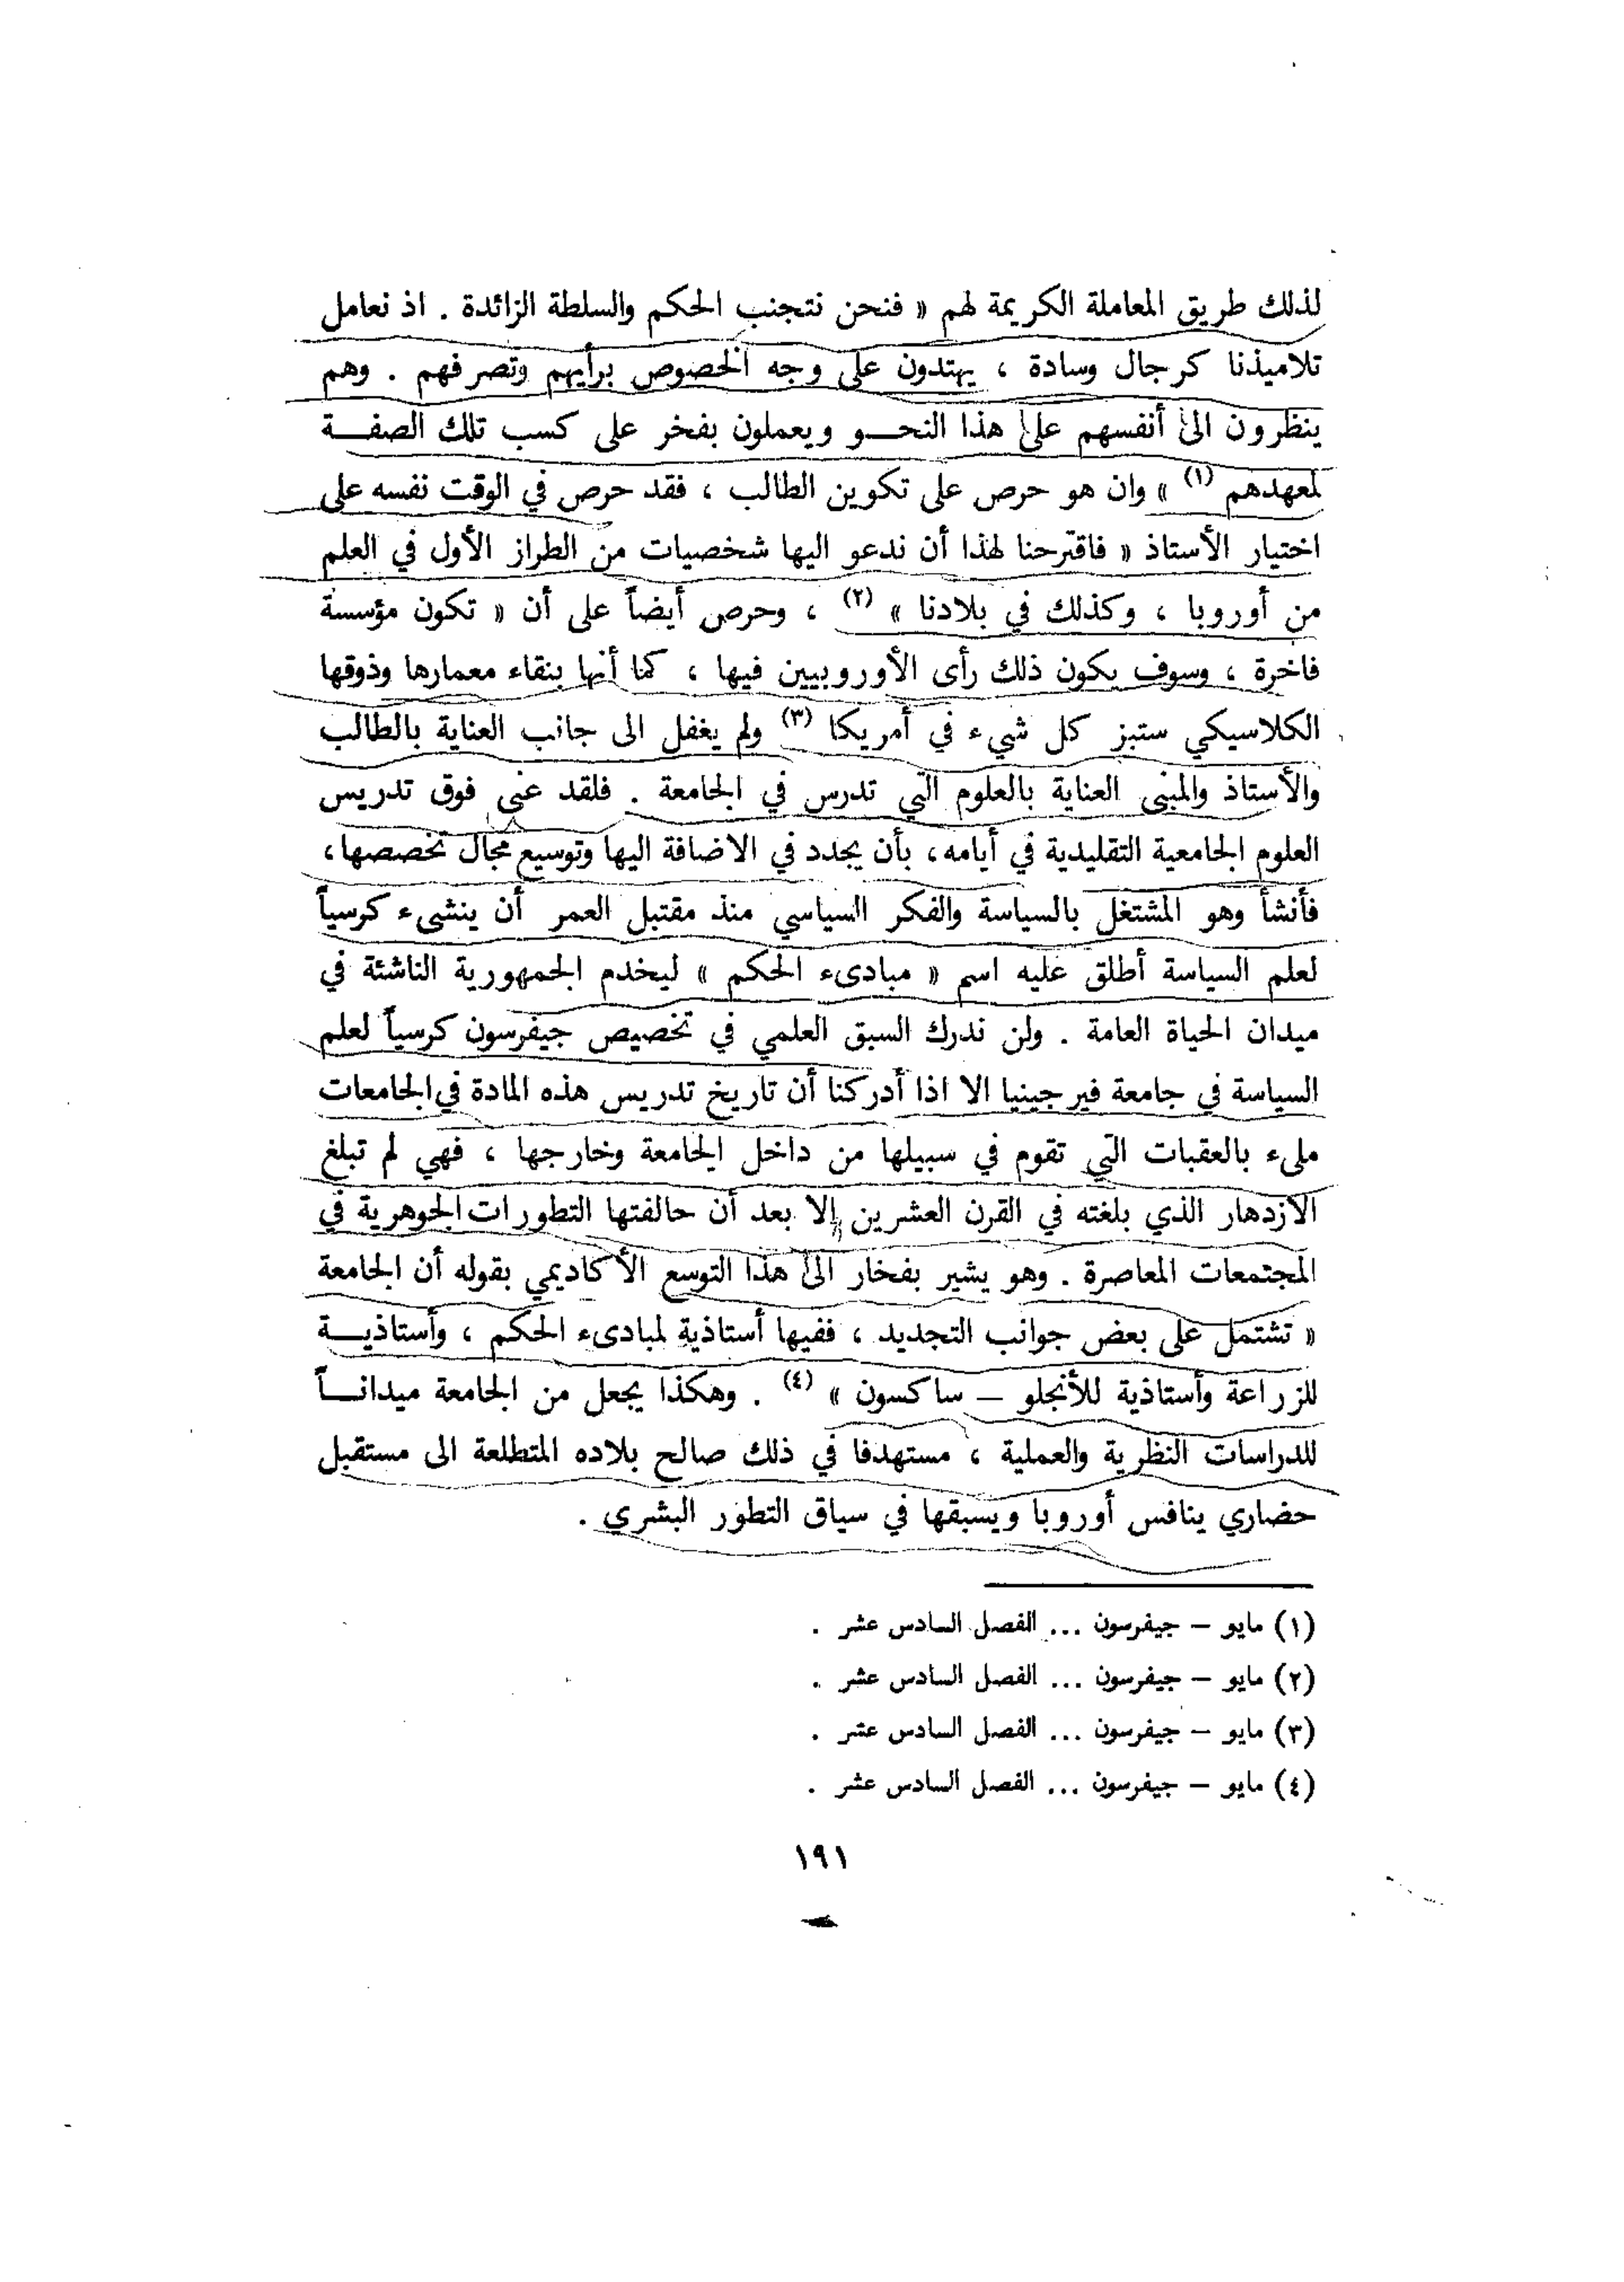 لذلك طريق المعاملة الكريمة لهم « فنحن نتجنب الحكم والسلطة الزائدة . اذ نعامل
تلاميذنا كرجال وسادة ، يهتدون على وجه الخصوص برأيهم وتصرفهم . وهم
ينظرون الى أنفسهم على هذا النحــو ويعملون بفخر على كسب تلك الصفــة
لمعهدهم (١) » وان هو حرص على تكوين الطالب ، فقد حرص في الوقت نفسه على
اختيار الأستاذ « فاقترحنا لهذا أن ندعو اليها شخصيات من الطراز الأول في العلم
من أوروبا ، وكذلك في بلادنا » (٢) ، وحرص أيضاً على أن « تكون مؤسسة
فاخرة ، وسوف يكون ذلك رأى الأوروبيين فيها ، كما أنها بنقاء معمارها وذوقها
الكلاسيكي ستبز كل شيء في أمريكا (٣) ولم يغفل الى جانب العناية بالطالب
والأستاذ والمبنى العناية بالعلوم التي تدرس في الجامعة . فلقد عنى فوق تدريس
العلوم الجامعية التقليدية في أيامه، بأن يجدد في الاضافة اليها وتوسيع مجال تخصصها،
فأنشأ وهو المشتغل بالسياسة والفكر السياسي منذ مقتبل العمر أن ينشىء كرسياً
لعلم السياسة أطلق عليه اسم « مبادىء الحكم » ليخدم الجمهورية الناشئة في
ميدان الحياة العامة . ولن ندرك السبق العلمي في تخصيص جيفرسون كرسياً لعلم
السياسة في جامعة فيرجينيا الا اذا أدركنا أن تاريخ تدريس هذه المادة في الجامعات
ملىء بالعقبات التي تقوم في سبيلها من داخل الجامعة وخارجها ، فهي لم تبلغ
الازدهار الذي بلغته في القرن العشرين إلا بعد أن حالفتها التطورات الجوهرية في
المجتمعات المعاصرة . وهو يشير بفخار الى هذا التوسع الأكاديمي بقوله أن الجامعة
« تشتمل على بعض جوانب التجديد ، ففيها أستاذية لمبادىء الحكم ، وأستاذيــة
للزراعة وأستاذية للأنجلو – ساكسون » (٤) . وهكذا يجعل من الجامعة ميدانــاً
للدراسات النظرية والعملية ، مستهدفا في ذلك صالح بلاده المتطلعة الى مستقبل
حضاري ينافس أوروبا ويسبقها في سياق التطور البشرى .
(١) مايو – جيفرسون ... الفصل السادس عشر .
(٢) مايو – جيفرسون ... الفصل السادس عشر .
(٣) مايو – جيفرسون ... الفصل السادس عشر .
(٤) مايو – جيفرسون ... الفصل السادس عشر .
١٩١